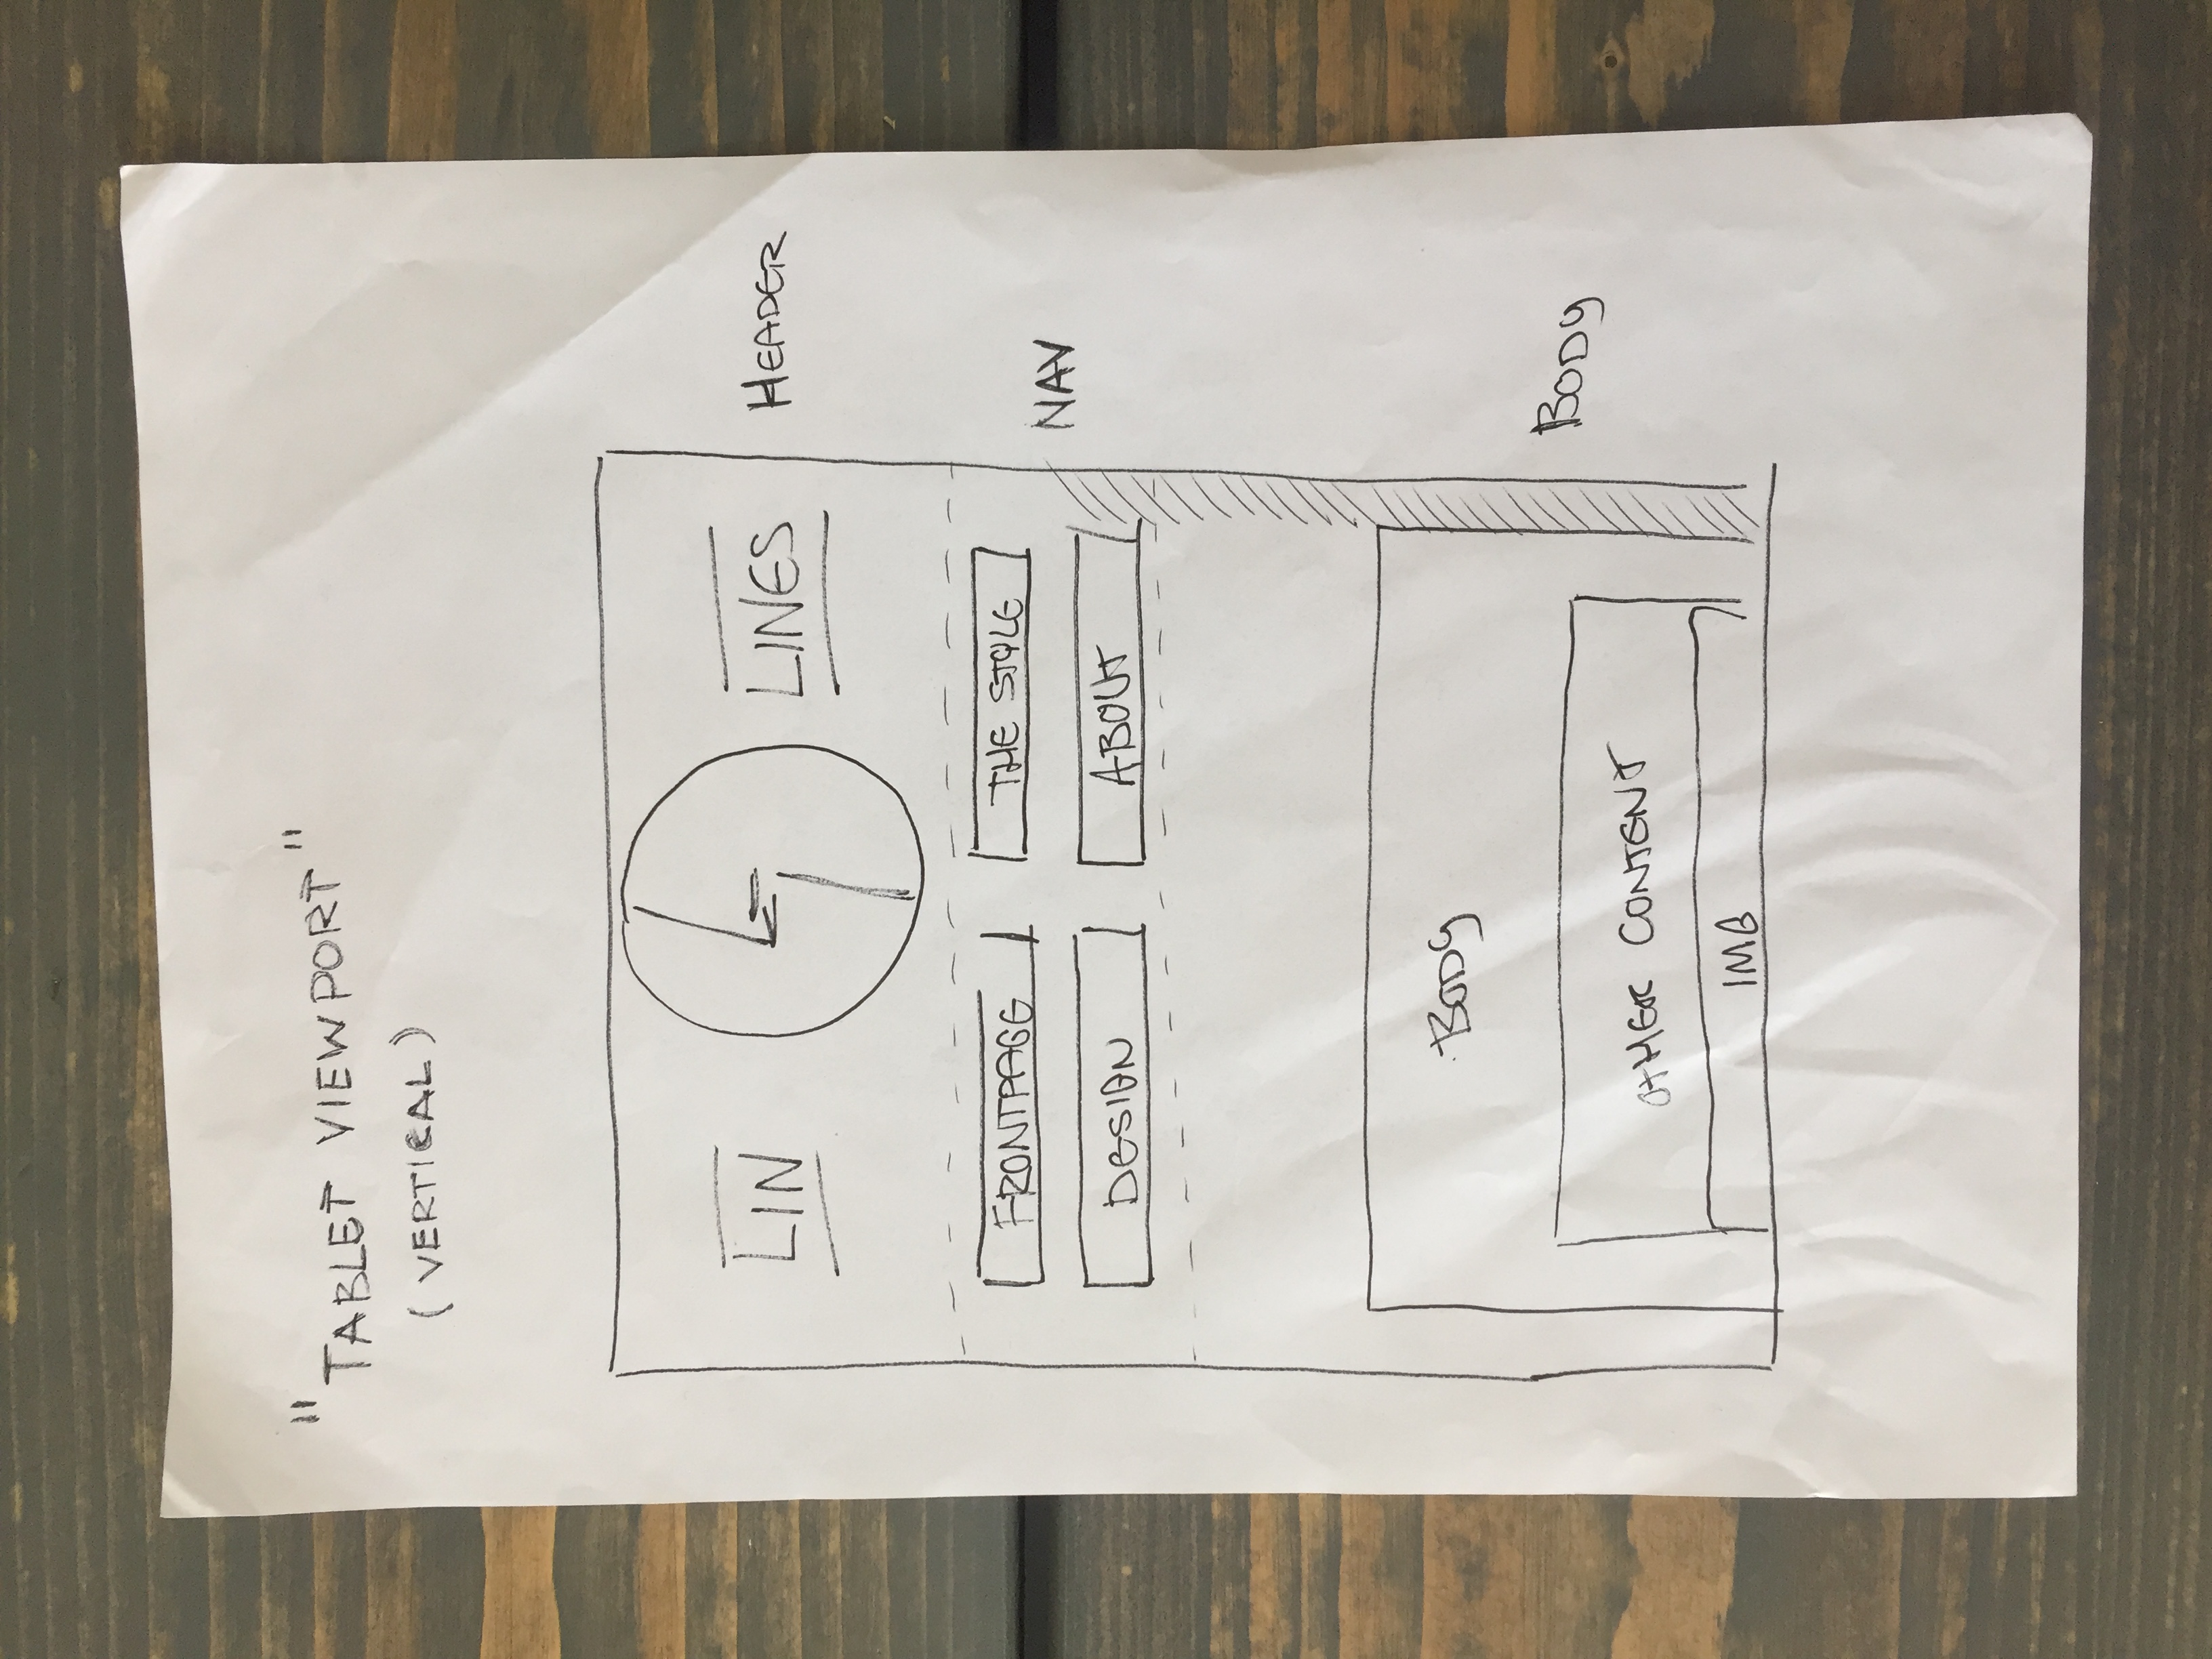 "TABLET VIEWPORT"
(VERTICAL)
LIN LINES HEADER
FRONTPAGE THE STYLE
NAV
DESIGN ABOUT
BODY
BODY
OTHER CONTENT
IMG